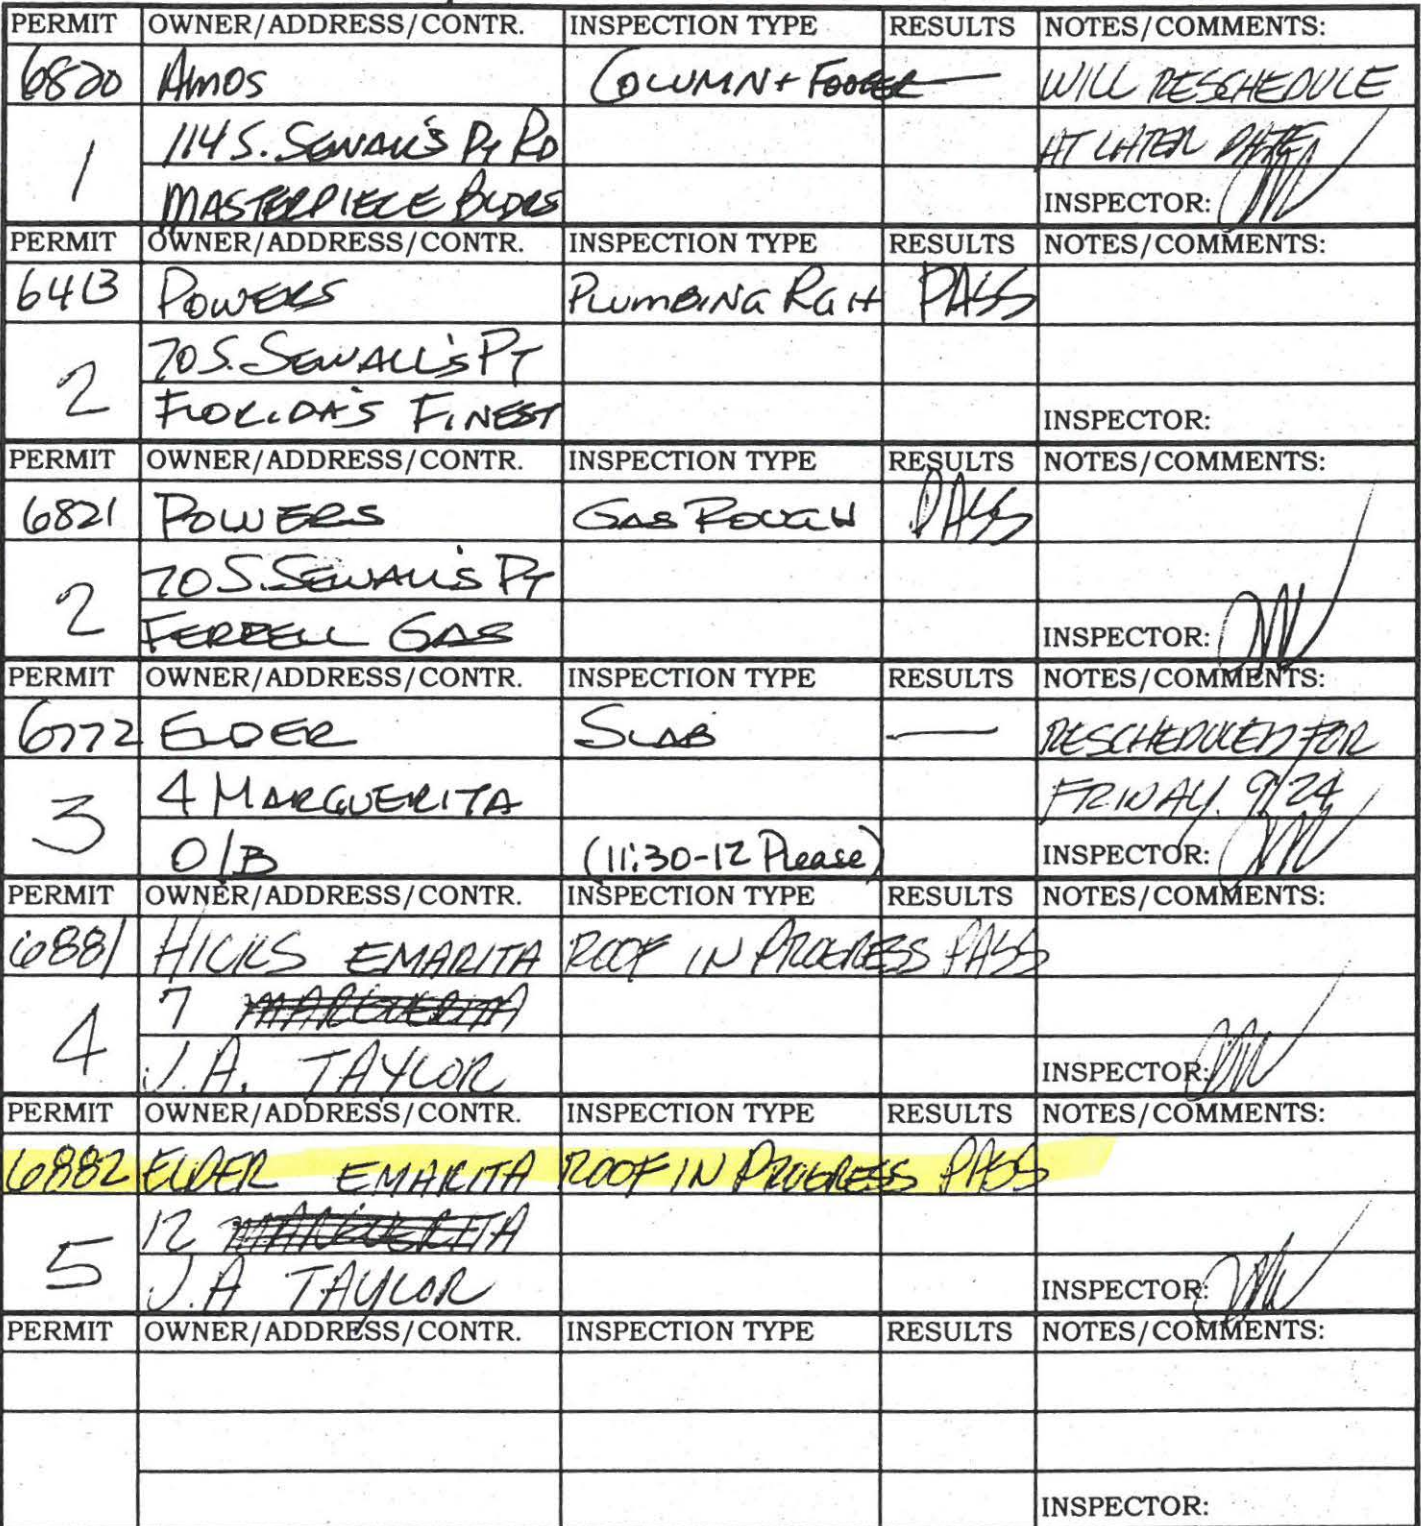 PERMIT OWNER/ADDRESS/CONTR. INSPECTION TYPE RESULTS NOTES/COMMENTS:
6820 Amos COLUMN + FOOTER — WILL RESCHEDULE
114 S. SEWALL'S PT RD AT LATER DATE
1 MASTERPIECE BLDRS INSPECTOR:
PERMIT OWNER/ADDRESS/CONTR. INSPECTION TYPE RESULTS NOTES/COMMENTS:
6413 POWERS PLUMBING RGH PASS
70 S. SEWALL'S PT
2 FLORIDA'S FINEST INSPECTOR:
PERMIT OWNER/ADDRESS/CONTR. INSPECTION TYPE RESULTS NOTES/COMMENTS:
6821 POWERS GAS ROUGH PASS
70 S. SEWALL'S PT
2 FERRELL GAS INSPECTOR:
PERMIT OWNER/ADDRESS/CONTR. INSPECTION TYPE RESULTS NOTES/COMMENTS:
6772 ELDER SLAB — RESCHEDULED FOR
4 MARGUERITA FRIDAY. 9/24
3 O/B (11:30-12 Please) INSPECTOR:
PERMIT OWNER/ADDRESS/CONTR. INSPECTION TYPE RESULTS NOTES/COMMENTS:
6881 HICKS EMARITA ROOF IN PROGRESS PASS
7 MARGUERITA
4 J.A. TAYLOR INSPECTOR:
PERMIT OWNER/ADDRESS/CONTR. INSPECTION TYPE RESULTS NOTES/COMMENTS:
6882 ELDER EMARITA ROOF IN PROGRESS PASS
12 MARGUERITA
5 J.A TAYLOR INSPECTOR:
PERMIT OWNER/ADDRESS/CONTR. INSPECTION TYPE RESULTS NOTES/COMMENTS:
INSPECTOR: